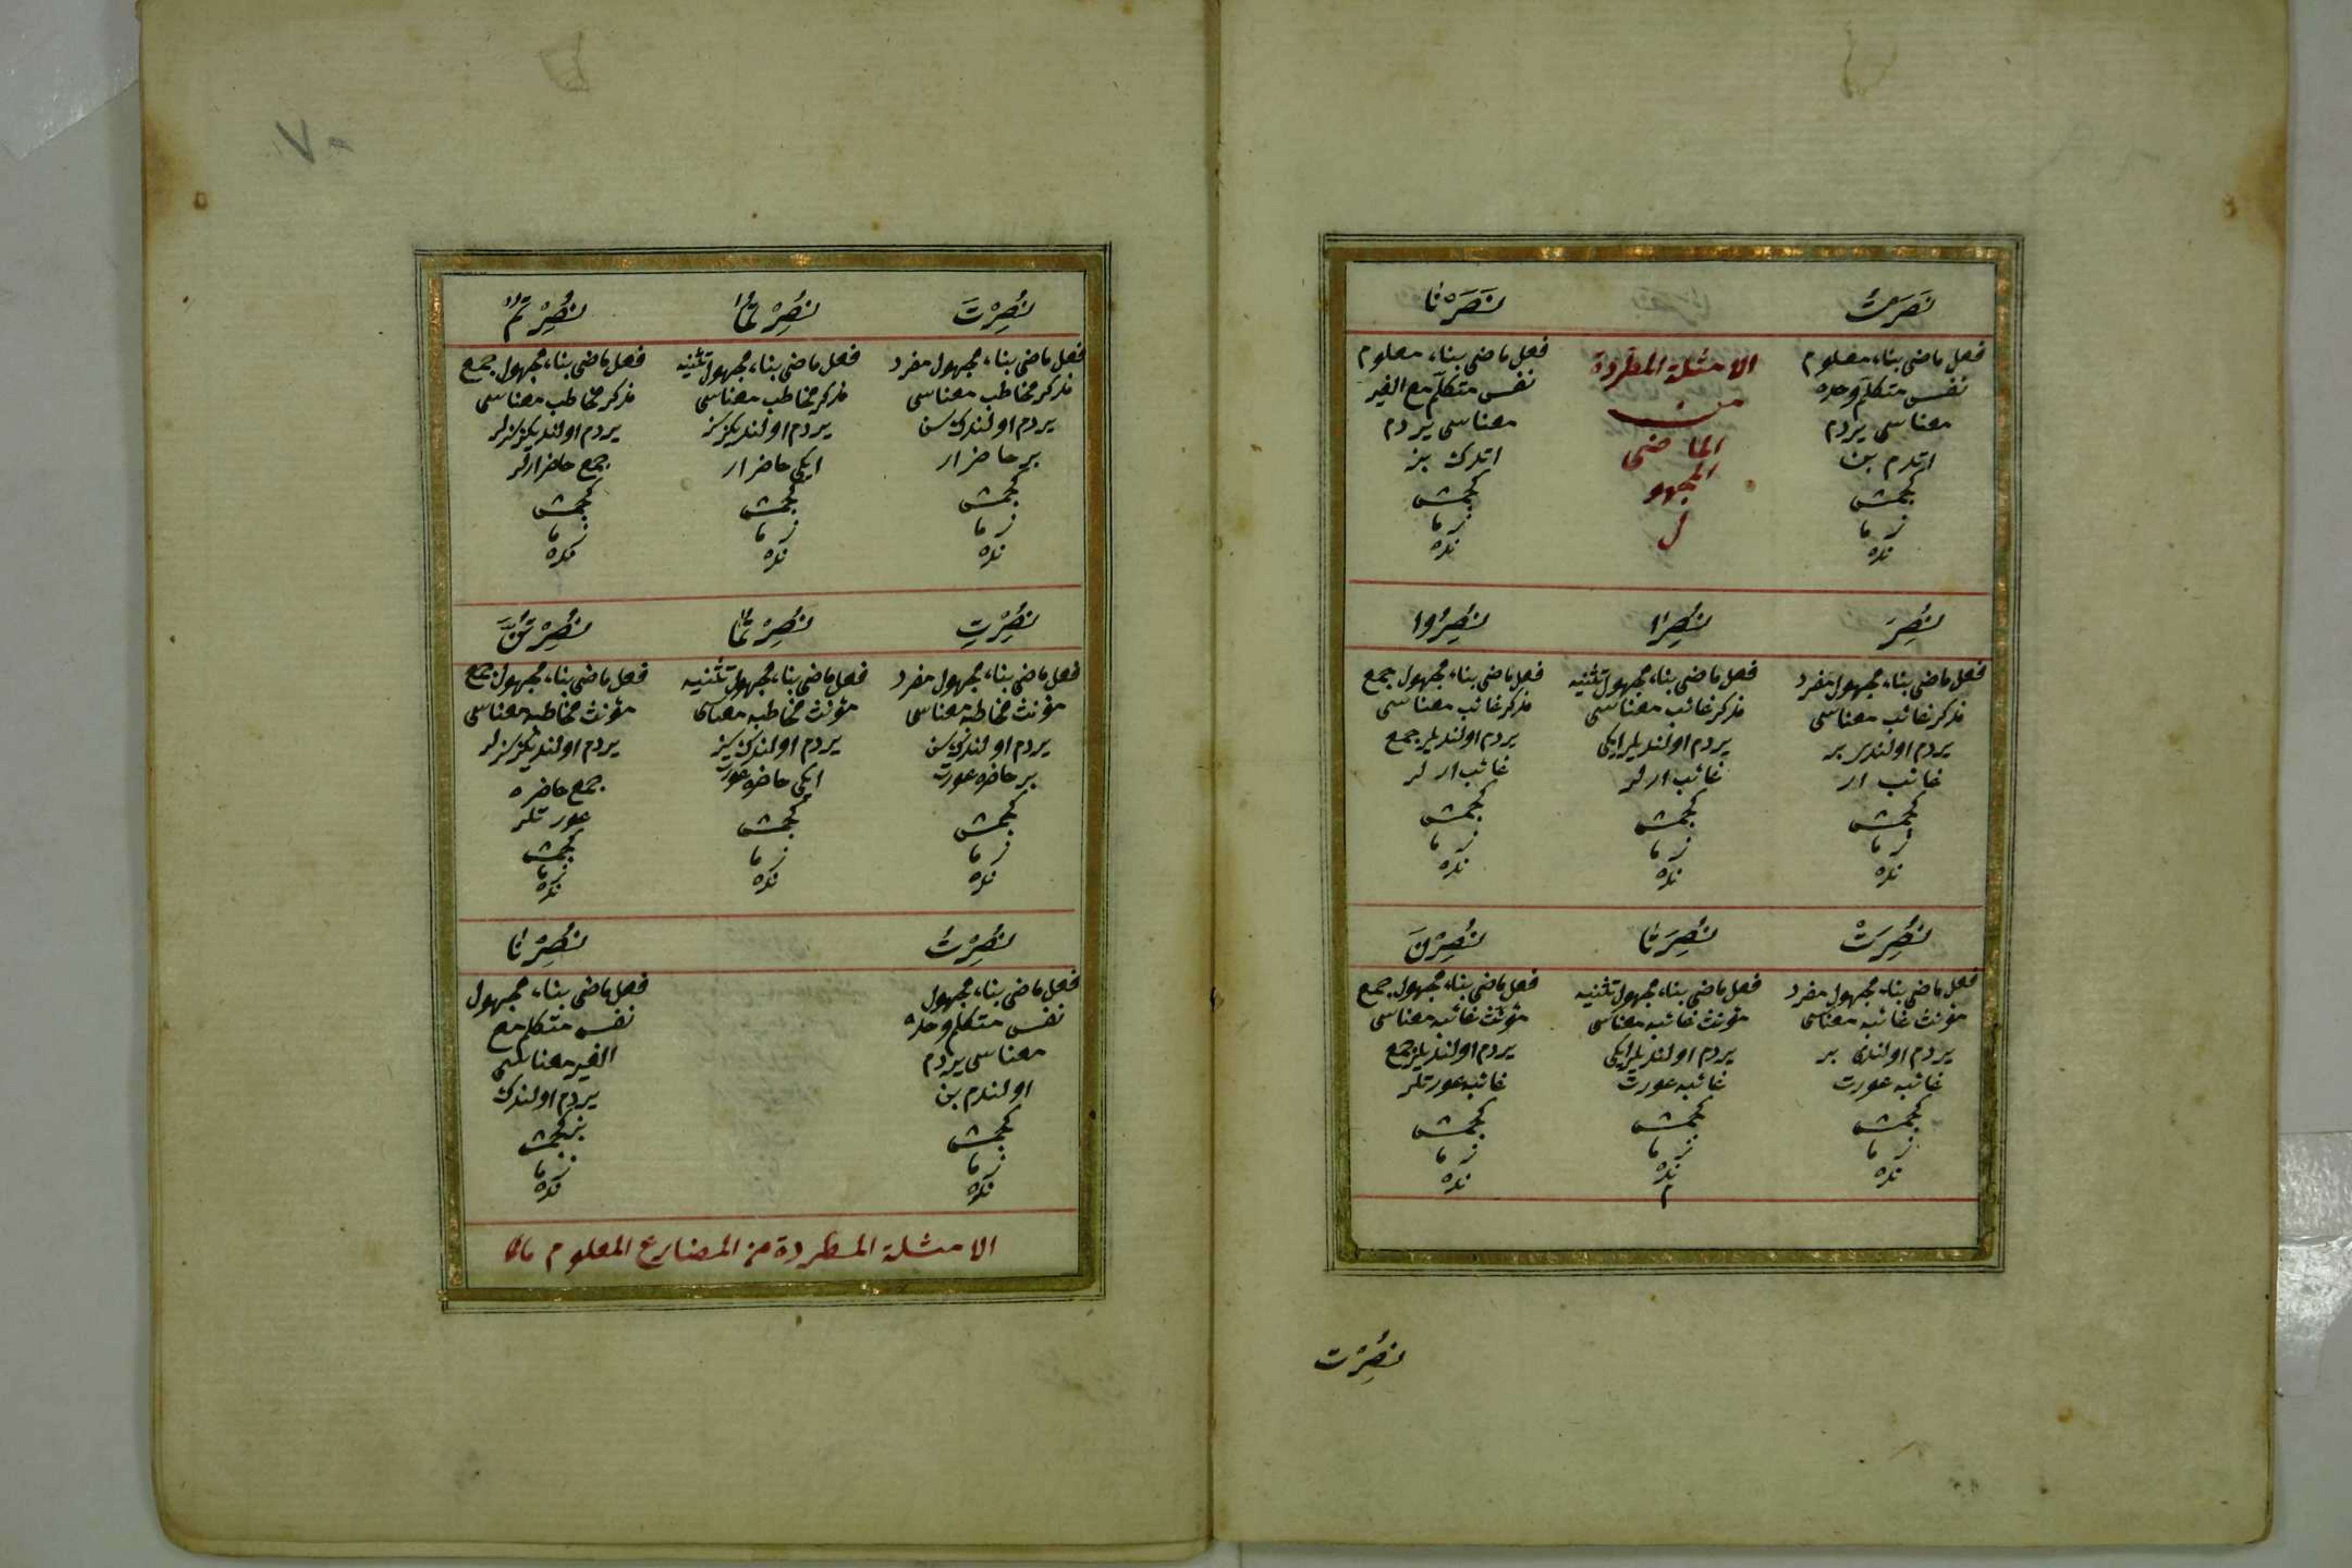 نَصَرْتُ
فعل ماضی بناء معلوم
نفس متكلم وحده
معناسی یردم
اتدم بن
كچمش
زما
نده
الامثلة المطردة
من
الماضی
المجهو
ل
نَصَرْنَا
فعل ماضی بناء معلوم
نفس متكلم مع الغیر
معناسی یردم
اتدك بز
كچمش
زما
نده
نُصِرَ
فعل ماضی بناء مجهول مفرد
مذكر غائب معناسی
یردم اولندی بر
غائب ار
كچمش
زما
نده
نُصِرَا
فعل ماضی بناء مجهول تثنیه
مذكر غائب معناسی
یردم اولندیلر ایكی
غائب ارلر
كچمش
زما
نده
نُصِرُوا
فعل ماضی بناء مجهول جمع
مذكر غائب معناسی
یردم اولندیلر جمع
غائب ارلر
كچمش
زما
نده
نُصِرَتْ
فعل ماضی بناء مجهول مفرد
مؤنث غائبه معناسی
یردم اولندی بر
غائبه عورت
كچمش
زما
نده
نُصِرَتَا
فعل ماضی بناء مجهول تثنیه
مؤنث غائبه معناسی
یردم اولندیلر ایكی
غائبه عورت
كچمش
زما
نده
م
نُصِرْنَ
فعل ماضی بناء مجهول جمع
مؤنث غائبه معناسی
یردم اولندیلر جمع
غائبه عورتلر
كچمش
زما
نده
نُصِرْت
٧٠
نُصِرْتَ
فعل ماضی بناء مجهول مفرد
مذكر مخاطب معناسی
یردم اولندك سن
بر حاضر ار
كچمش
زما
نده
نُصِرْتُمَا
فعل ماضی بناء مجهول تثنیه
مذكر مخاطب معناسی
یردم اولندیكز سز
ایكی حاضر ار
كچمش
زما
نده
نُصِرْتُمْ
فعل ماضی بناء مجهول جمع
مذكر مخاطب معناسی
یردم اولندیكز سزلر
جمع حاضر ارلر
كچمش
زما
نده
نُصِرْتِ
فعل ماضی بناء مجهول مفرد
مؤنث مخاطبه معناسی
یردم اولندك سن
بر حاضره عورت
كچمش
زما
نده
نُصِرْتُمَا
فعل ماضی بناء مجهول تثنیه
مؤنث مخاطبه معناسی
یردم اولندك سز
ایكی حاضره عورت
كچمش
زما
نده
نُصِرْتُنَّ
فعل ماضی بناء مجهول جمع
مؤنث مخاطبه معناسی
یردم اولندیكز سزلر
جمع حاضره
عورتلر
كچمش
زما
نده
نُصِرْتُ
فعل ماضی بناء مجهول
نفس متكلم وحده
معناسی یردم
اولندم بن
كچمش
زما
نده
نُصِرْنَا
فعل ماضی بناء مجهول
نفس متكلم مع
الغیر معناسی
یردم اولندك
بز كچمش
زما
نده
الامثلة المطردة من المضارع المعلوم